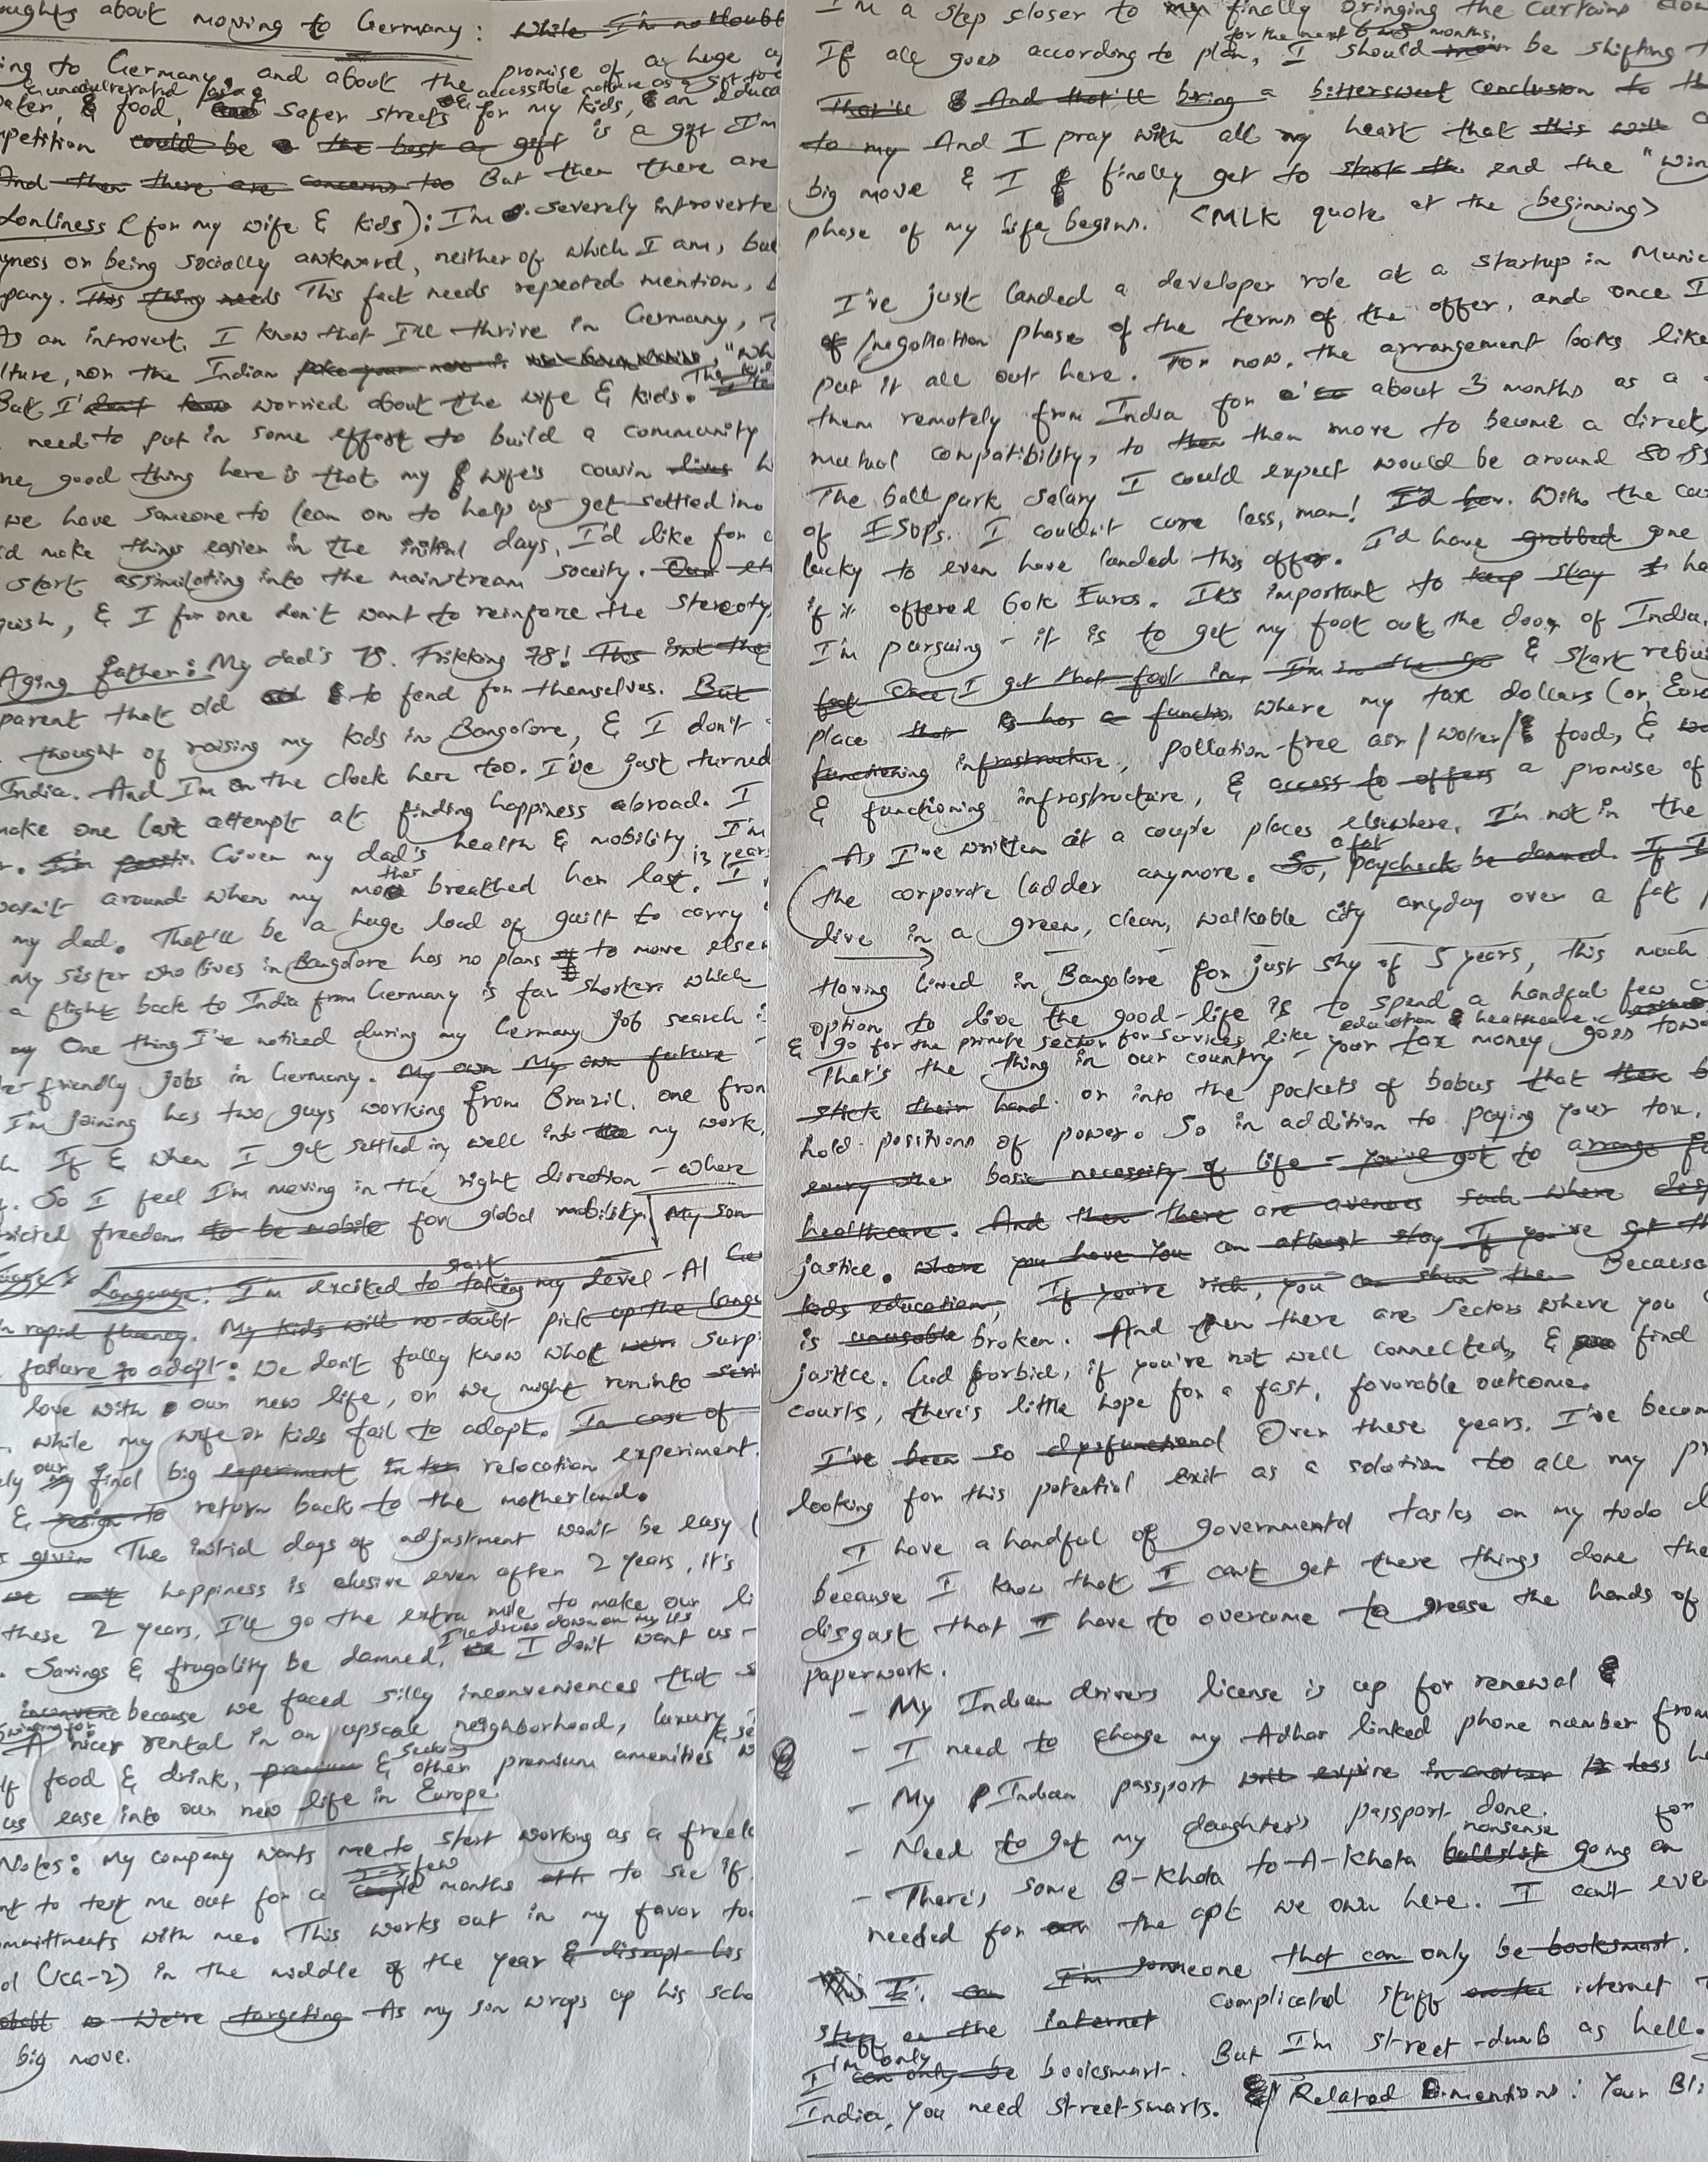 oughts about moving to Germany: While I'm no doubt
ing to Germany, and about the promise of a huge
unadulterated accessible nature as a gift to
ater, & food, safer streets for my kids, & an educa
petition could be the best gift is a gift I'm
And then there are concerns too But then there are
Lonliness (for my wife & kids): I'm severely introverte
yness or being socially awkward, neither of which I am, but
pany. This thing needs This fact needs repeated mention,
As an introvert, I know that I'll thrive in Germany,
lture, nor the Indian poke your nose "wh
But, I' worried about the wife & kids. The
need to put in some effort to build a community
ne good thing here is that my wife's cousin lives
we have someone to lean on to help us get settled in.
ld make things easier in the initial days, I'd like for
start assimilating into the mainstream soceity. Our
guish, & I for one don't want to reinforce the stereoty
Aging father: My dad's 78. Frikking 78! This isnt the
parent that old to fend for themselves. But
thought of raising my kids in Bangolore, & I don't
India. And I'm on the clock here too. I've just turned
make one last attempt at finding happiness abroad. I
r. Given my dad's health & mobility, I'm
wasn't around when my mother breathed her last. 13 years I
my dad. That'll be a huge load of guilt to carry
My sister who lives in Bangalore has no plans to move elsew
a flight back to India from Germany is far shorter which
One thing I've noticed during my Germany job search
friendly jobs in Germany. My own My own future
I'm joining has two guys working from Brazil, one from
If & when I get settled in well into the my work,
. So I feel I'm moving in the right direction - where
freedom to be mobile for global mobility. My son
Language: I'm excited to start taking my level-A1
rapid fluency. My kids will no-doubt pick up the langu
failure to adapt: We don't fully know what surp
love with our new life, or we might run into
, while my wife or kids fail to adapt. In case of
ely our final big experiment relocation experiment.
& resign to return back to the motherland.
given The initial days of adjustment won't be easy (
happiness is elusive even after 2 years, it's
these 2 years, I'll go the extra mile to make our li
I'll draw down on my US
. Savings & frugality be damned, I don't want us
because we faced silly inconveniences that
Swinging for
A nicer rental in an upscale neighborhood, luxury
lf food & drink, premium & seeking other premium amenities
us ease into our new life in Europe
Notes: My company wants me to start working as a freela
nt to test me out for a few months to see if
mmittments with me. This works out in my favor too
ol (ICA-2) in the middle of the year & disrupt his
We're targeting As my son wraps up his scho
big move.
I'm a step closer to my finally bringing the curtains dow
for the next 6 months,
If all goes according to plan, I should be shifting
That'll & And that'll bring a bittersweet conclusion to th
to my And I pray with all my heart that this will
big move & I finally get to start the end the "win
phase of my life begins. <MLK quote at the beginning>
I've just landed a developer role at a startup in Munic
of negotiation phase of the terms of the offer, and once I
put it all out here. For now, the arrangement looks like
them remotely from India for about 3 months as a
mutual compatibility, to then then move to become a direct
The ballpark salary I could expect would be around 80-85
of ESOPs. I couldn't care less, man! With the cu
lucky to even have landed this offer. I'd have grabbed gone
if it offered 60k Euros. It's important to keep stay ha
I'm pursuing - it is to get my foot out the door of India,
foot Once I get that foot in, I'm in the & start rebui
place that has a functio. where my tax dollars (or, Euro
functioning infrastructure, pollution-free air/water/ food, &
& functioning infrastructure, & access to offers a promise of
As I've written at a couple places elsewhere, I'm not in the
the corporate ladder anymore. So, a fat paycheck be damned. If I
live in a green, clean, walkable city anyday over a fat p
Having lived in Bangalore for just shy of 5 years, this much
option to live the good-life is to spend a handful few
& go for the private sector for services like education & healthcare.
That's the thing in our country - your tax money goes towa
stick their hand or into the pockets of babus that b
hold positions of power. So in addition to paying your tax,
every other basic necessity of life - you've got to arrange fo
healthcare. And then there are avenues such where
justice. where you have You can atleast stay If you've got th
kids education, If you're rich, you can the Because
is unusable broken. And then there are sectors where you
justice. God forbid, if you're not well connected, & find
courts, there's little hope for a fast, favorable outcome.
I've been so dysfunctional Over these years, I've becom
looking for this potential exit as a solution to all my pr
I have a handful of governmental tasks on my todo
because I know that I can't get these things done the
disgust that I have to overcome to grease the hands of
paperwork.
- My Indian drivers license is up for renewal
- I need to change my Adhar linked phone number from
- My Indian passport will expire in less
- Need to get my daughter's passport done.
- There's some B-Khata to-A-Khata bullshit nonsense going on for
needed for our the apt we own here. I can't eve
I'm someone that can only be booksmart.
stuff on the internet complicated stuff on the internet
I'm only
I can only be booksmart. But I'm street-dumb as hell.
India, you need street-smarts. Related Dimentions: Your Bl